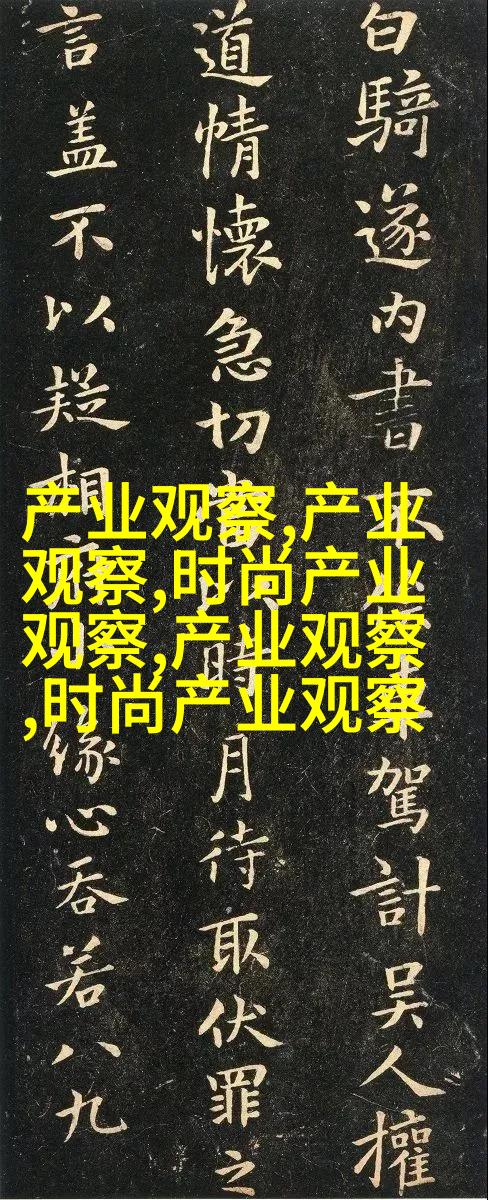 白騎遂内書不車駕計吴人攉
道情懷急切時月待取伏罪之
言盖不以疑相緣心吞若八九
产业观察,产业
观察,时尚产业
观察,产业观察
,时尚产业观察